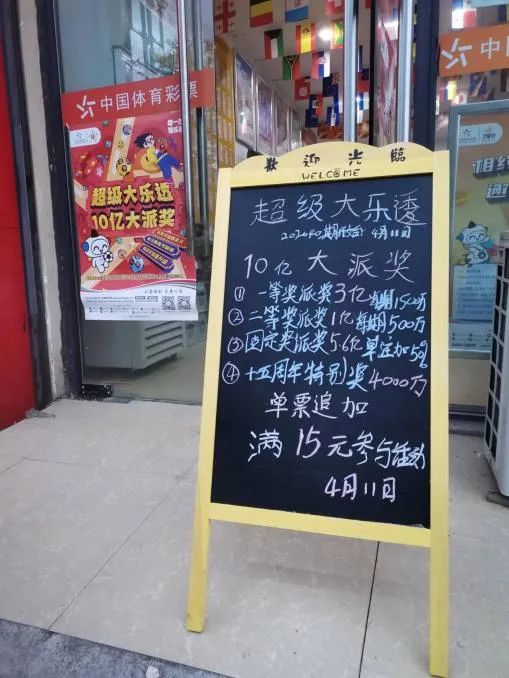 中国体育彩票
超级大乐透
10亿大派奖
中国
歡迎光臨
WELCOME
超级大乐透
4月11日
10亿大派奖
① 一等奖派奖3亿每期1500万
② 二等奖派奖1亿每期500万
③ 固定奖派奖5.6亿单定加50%
④ 十五周年特别奖4000万
单票追加
满15元参与活动
4月11日